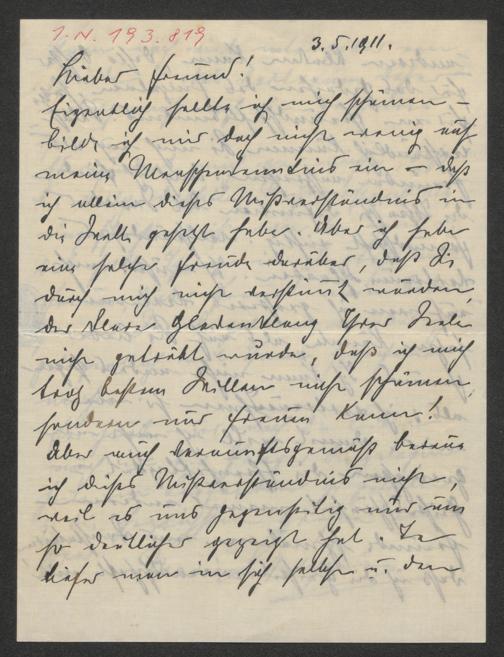 I.N. 193.819
3.5.1911.
Lieber Freund!
Eigentlich sollte ich mich schämen –
bilde ich mir doch nicht wenig auf
meine Menschenkenntnis ein – daß
ich allein dieses Mißverständnis in
die Welt gesetzt habe. Aber ich habe
eine solche Freude darüber, daß Sie
durch mich nicht verstimmt wurden,
der klare Glockenklang Ihrer Seele
nicht getrübt wurde, daß ich mich
trotz bestem Willen nicht schämen,
sondern nur freuen kann!
Aber auch vernunftsgemäß bereue
ich dieses Mißverständnis nicht,
weil es uns gegenseitig nur um
so deutlicher gezeigt hat. Je
tiefer man in sich selbst u. den